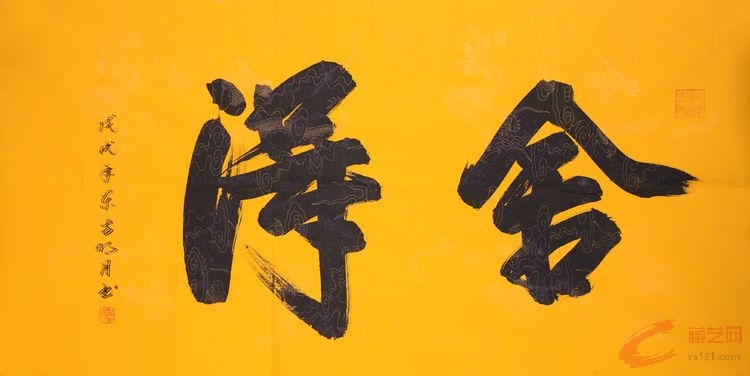 舍得
戊戌年东方明月书
藏艺网
ys121.com